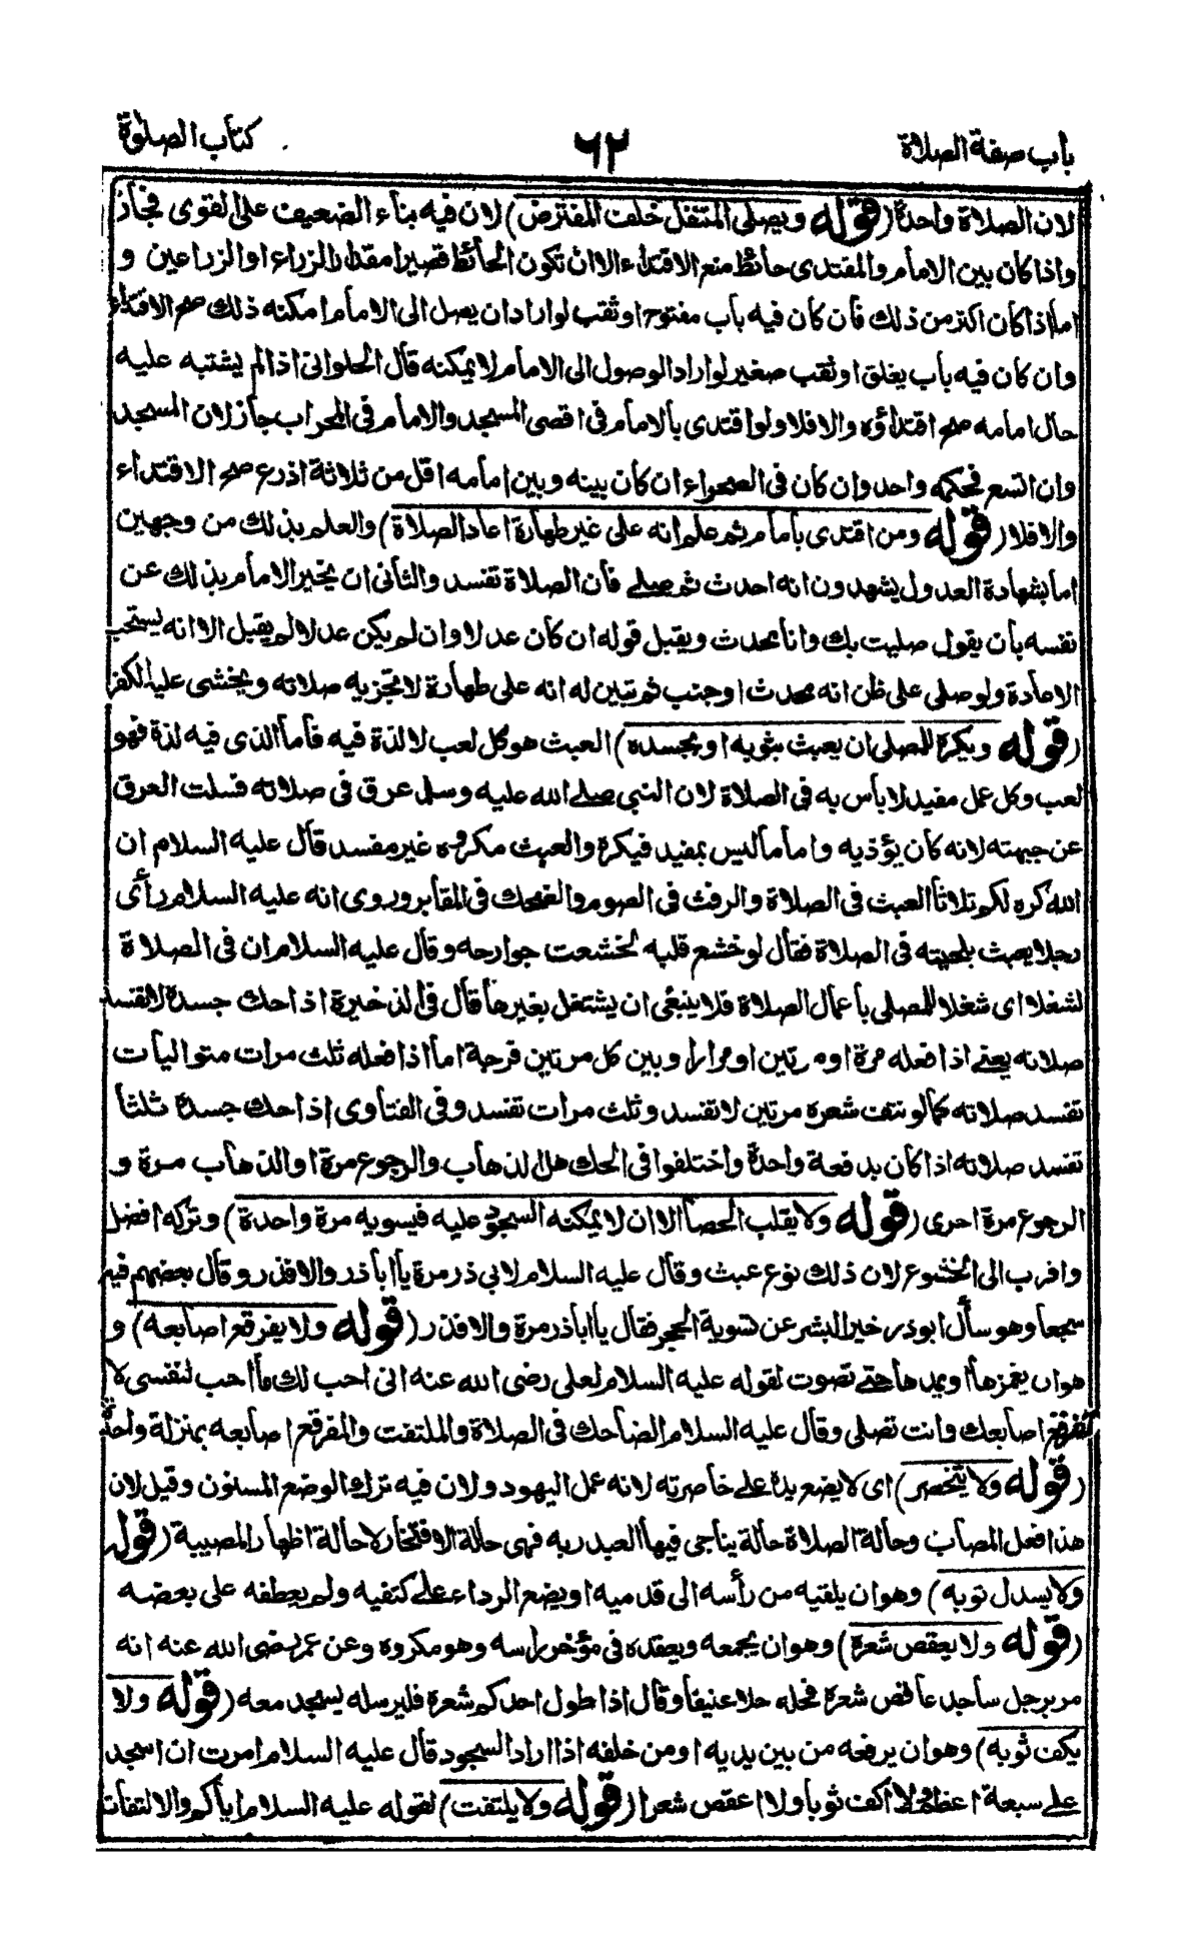 باب صفة الصلاة ٦٢ كتاب الصلوة
لان الصلاة واحدة (قوله ويصلى المتنفل خلف المفترض) لان فيه بناء الضعيف على القوى فجاز
واذا كان بين الامام والمقتدى حائط منع الاقتداء الا ان تكون الحائط قصيرا مقدار الزراء او الزراعين و
اما اذا كان اكثر من ذلك فان كان فيه باب مفتوح او ثقب لو اراد ان يصل الى الامام امكنه ذلك صح الاقتداء
وان كان فيه باب يغلق او ثقب صغير لو اراد الوصول الى الامام لا يمكنه قال الحلوانى اذا لم يشتبه عليه
حال امامه صح اقتداؤه والا فلا ولو اقتدى بالامام فى اقصى المسجد والامام فى المحراب جاز لان المسجد
وان اتسع فحكمه واحد وان كان فى الصحراء ان كان بينه وبين امامه اقل من ثلاثة اذرع صح الاقتداء
والا فلا (قوله ومن اقتدى بامام ثم علم انه على غير طهارة اعاد الصلاة) والعلم بذلك من وجهين
اما بشهادة العدول يشهدون انه احدث ثم صلے فان الصلاة تفسد والثانى ان يخبر الامام بذلك عن
نفسه بان يقول صليت بك وانا محدث ويقبل قوله ان كان عدلا وان لم يكن عدلا لم يقبل الا انه يستحب
الاعادة ولو صلى على ظن انه محدث او جنب ثم تبين له انه على طهارة لا تجزيه صلاته ويخشى عليه الكفر
(قوله ويكره للمصلى ان يعبث بثوبه او بجسده) العبث هو كل لعب لا لذة فيه فاما الذى فيه لذة فهو
لعب وكل عمل مفيد لا بأس به فى الصلاة لان النبي صلے الله عليه وسلم عرق فى صلاته فسلت العرق
عن جبهته لانه كان يؤذيه واما ما ليس بمفيد فيكره والعبث مكروه غير مفسد قال عليه السلام ان
الله كره لكم ثلاثا العبث فى الصلاة والرفث فى الصوم والضحك فى المقابر وروى انه عليه السلام رأى
رجلا يعبث بلحيته فى الصلاة فقال لو خشع قلبه لخشعت جوارحه وقال عليه السلام ان فى الصلاة
لشغلا اى شغلا للمصلى باعمال الصلاة فلا ينبغى ان يشتغل بغيرها قال فى الذخيرة اذا حك جسده لا تفسد
صلاته يعنے اذا فعله مرة او مرتين او مرارا وبين كل مرتين فرجة اما اذا فعله ثلث مرات متواليات
تفسد صلاته كما لو نتف شعره مرتين لا تفسد وثلث مرات تفسد وفى الفتاوى اذا حك جسده ثلثا
تفسد صلاته اذا كان بدفعة واحدة واختلفوا فى الحك هل الذهاب والرجوع مرة او الذهاب مرة و
الرجوع مرة اخرى (قوله ولا يقلب الحصا الا ان لا يمكنه السجود عليه فيسويه مرة واحدة) وتركه افضل
واقرب الى الخشوع لان ذلك نوع عبث وقال عليه السلام لابي ذر مرة يا اباذر والا فذر وقال بعضهم فيه
سجعا وهو سأل ابو ذر خير البشر عن تسوية الحجر فقال يا اباذر مرة والا فذر (قوله ولا يفرقع اصابعه) و
هو ان يغمزها او يمدها حتے تصوت لقوله عليه السلام لعلى رضى الله عنه انى احب لك ما احب لنفسى لا
تفرقع اصابعك وانت تصلى وقال عليه السلام الضاحك فى الصلاة والملتفت والمفرقع اصابعه بمنزلة واحدة
(قوله ولا يتخصر) اى لا يضع يده علے خاصرته لانه عمل اليهود ولان فيه ترك الوضع المسنون وقيل لان
هذا فعل المصاب وحالة الصلاة حالة يناجى فيها العبد ربه فهى حالة الافتخار لا حالة اظهار المصيبة (قوله
ولا يسدل ثوبه) وهو ان يلقيه من رأسه الى قدميه او يضع الرداء علے كتفيه ولم يعطفه على بعضه
(قوله ولا يعقص شعره) وهو ان يجمعه ويعقده فى مؤخر راسه وهو مكروه وعن عمر رضى الله عنه انه
مر برجل ساجد عاقص شعره فحله حلا عنيفا وقال اذا طول احدكم شعره فليرسله يسجد معه (قوله ولا
يكف ثوبه) وهو ان يرفعه من بين يديه او من خلفه اذا اراد السجود قال عليه السلام امرت ان اسجد
علے سبعة اعظم لا اكف ثوبا ولا اعقص شعرا (قوله ولا يلتفت) لقوله عليه السلام اياكم والالتفات